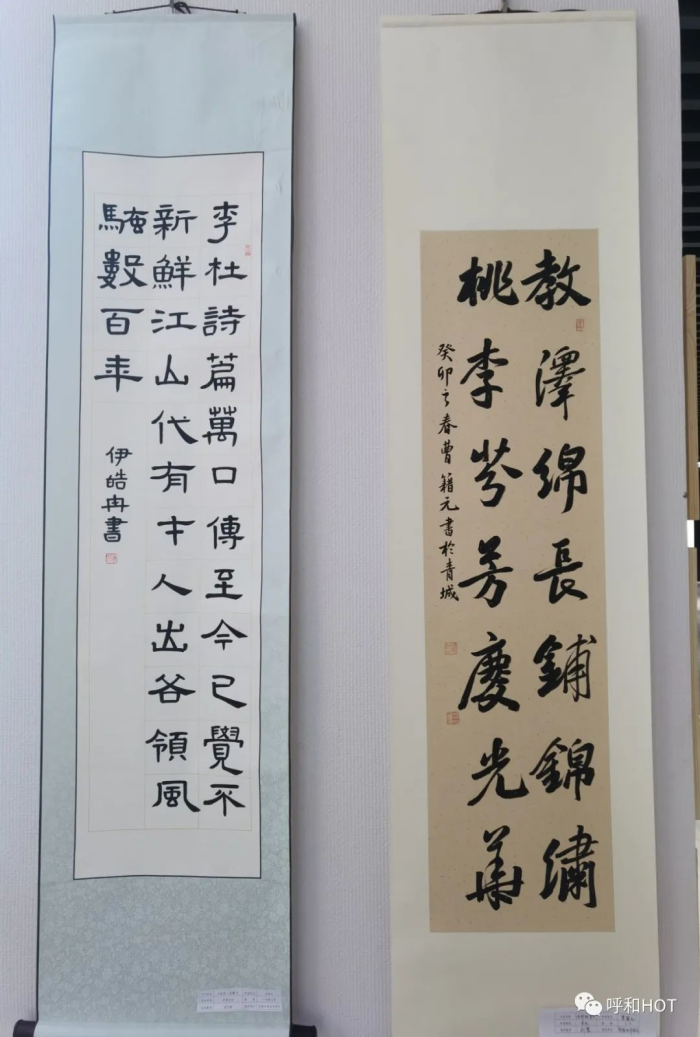 李杜詩篇萬口傳至今已覺不
新鮮江山代有才人出各領風
騷數百年
伊皓冉書
教澤綿長鋪錦繡
桃李芬芳慶光華
癸卯之春曹籍元書於青城
呼和HOT